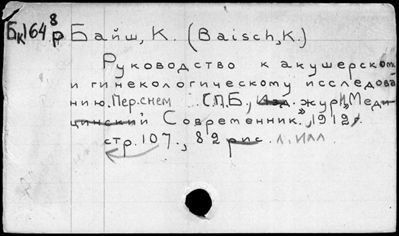 Бк164 8/р Байш, К. (Baisch, K.)
Руководство к акушерском
и гинекологическому исследова
нию. Пер. с нем С.П.Б., Изд. журн. „Меди-
цинский Современник", 1912.
стр. 107., 82 рис. л. илл